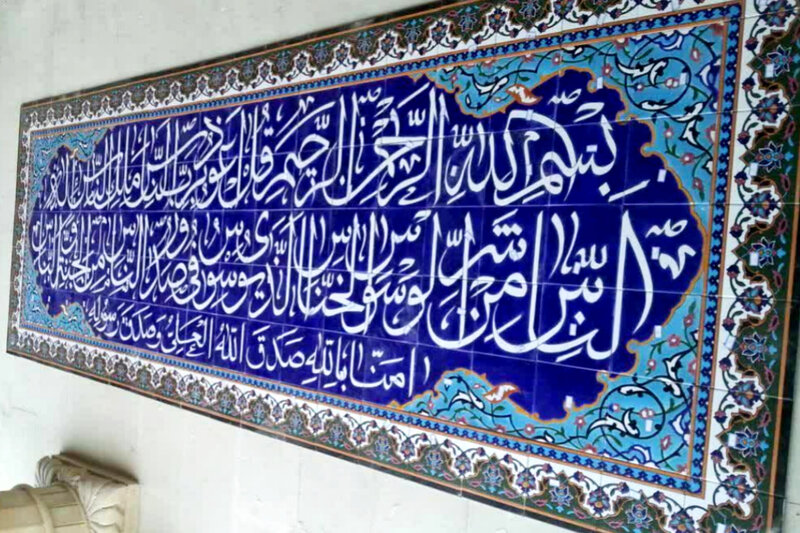 بِسْمِ اللهِ الرَّحْمنِ الرَّحيمِ قُلْ اَعُوذُ بِرَبِّ النّاسِ مَلِكِ النّاسِ اِلهِ
النّاسِ مِنْ شَرِّ الْوَسْواسِ الْخَنّاسِ الَّذي يُوَسْوِسُ في صُدُورِ النّاسِ مِنَ الْجِنَّةِ وَ النّاسِ
امَنّا بِاللهِ صَدَقَ اللهُ الْعَلِيُّ وَ صَدَقَ رَسُولُهُ